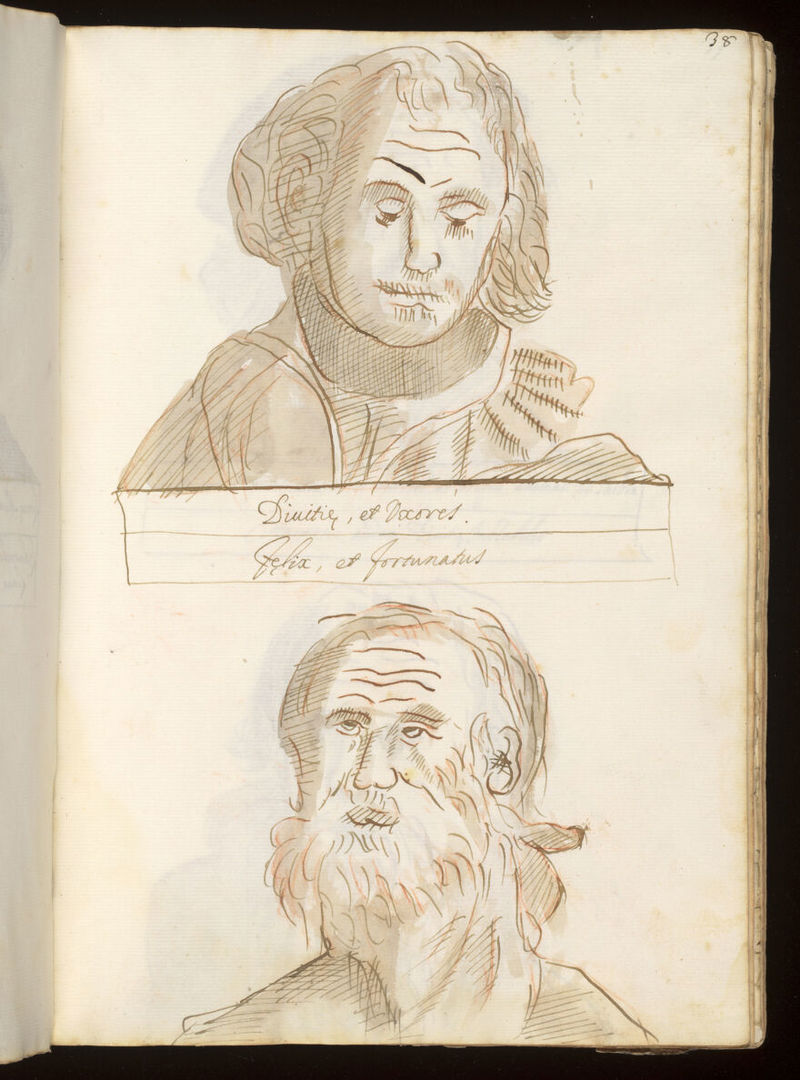 38
Diuitię, et Vxores.
Fęlix, et fortunatus